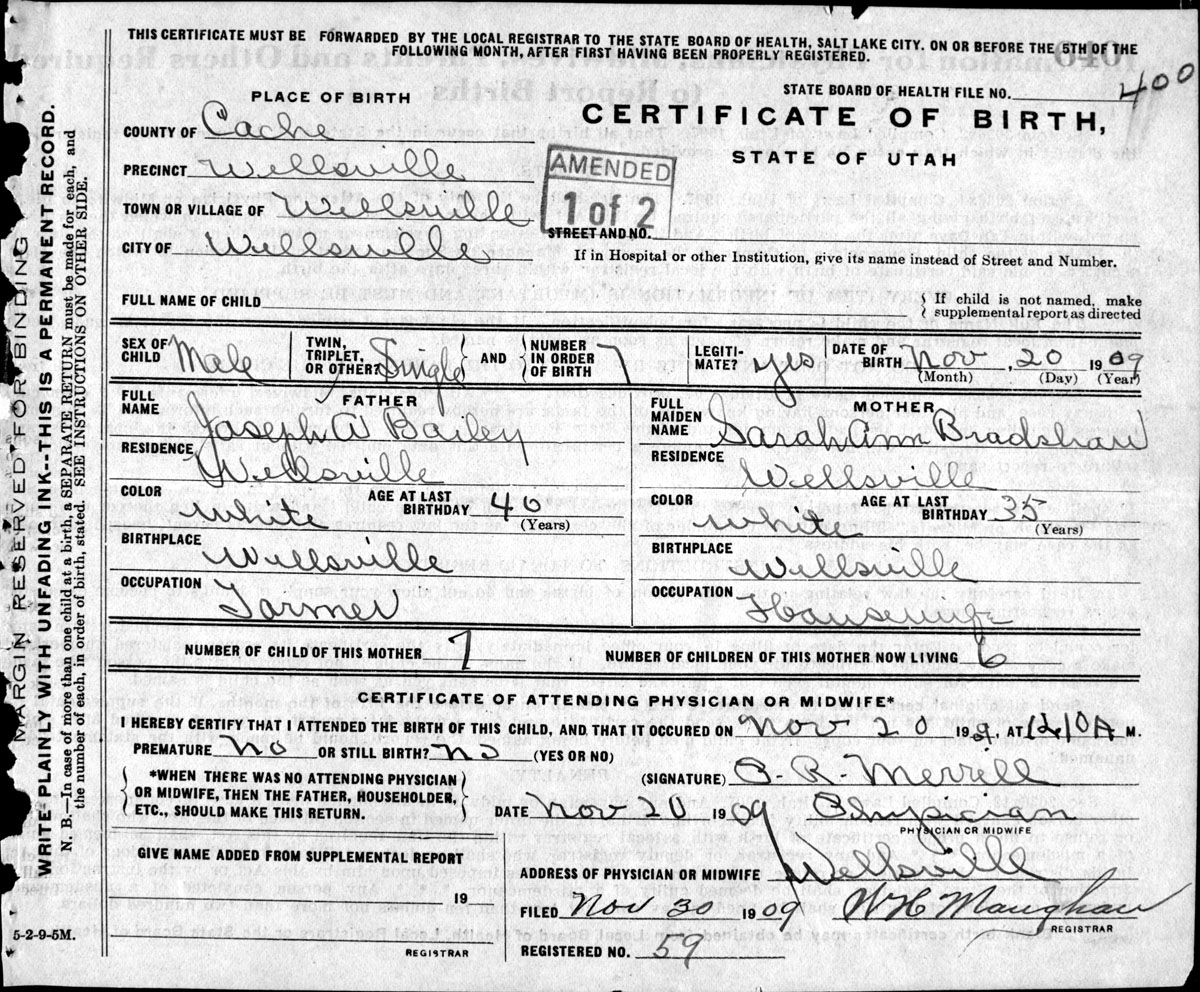 THIS CERTIFICATE MUST BE FORWARDED BY THE LOCAL REGISTRAR TO THE STATE BOARD OF HEALTH, SALT LAKE CITY. ON OR BEFORE THE 5TH OF THE
FOLLOWING MONTH, AFTER FIRST HAVING BEEN PROPERLY REGISTERED.
STATE BOARD OF HEALTH FILE NO. 400
PLACE OF BIRTH
CERTIFICATE OF BIRTH,
STATE OF UTAH
COUNTY OF Cache
PRECINCT Wellsville
AMENDED
1 of 2
TOWN OR VILLAGE OF Wellsville
STREET AND NO.
CITY OF Wellsville
If in Hospital or other Institution, give its name instead of Street and Number.
FULL NAME OF CHILD
If child is not named, make
supplemental report as directed
SEX OF CHILD Male
TWIN, TRIPLET, OR OTHER? Single
AND NUMBER IN ORDER OF BIRTH
LEGITI- MATE? yes
DATE OF BIRTH Nov, 20 1909
(Month) (Day) (Year)
FATHER
FULL NAME Joseph W Bailey
RESIDENCE Wellsville
COLOR White
AGE AT LAST BIRTHDAY 40
(Years)
BIRTHPLACE Wellsville
OCCUPATION Farmer
MOTHER
FULL MAIDEN NAME Sarah Ann Bradshaw
RESIDENCE Wellsville
COLOR White
AGE AT LAST BIRTHDAY 35
(Years)
BIRTHPLACE Wellsville
OCCUPATION Housewife
NUMBER OF CHILD OF THIS MOTHER 7
NUMBER OF CHILDREN OF THIS MOTHER NOW LIVING 6
CERTIFICATE OF ATTENDING PHYSICIAN OR MIDWIFE*
I HEREBY CERTIFY THAT I ATTENDED THE BIRTH OF THIS CHILD, AND THAT IT OCCURED ON Nov 20 19 , AT A M.
PREMATURE No OR STILL BIRTH? no (YES OR NO)
*WHEN THERE WAS NO ATTENDING PHYSICIAN
OR MIDWIFE, THEN THE FATHER, HOUSEHOLDER,
ETC., SHOULD MAKE THIS RETURN.
(SIGNATURE) Merrill
DATE Nov 20 1909 Physician
PHYSICIAN OR MIDWIFE
GIVE NAME ADDED FROM SUPPLEMENTAL REPORT
19
REGISTRAR
ADDRESS OF PHYSICIAN OR MIDWIFE Wellsville
FILED Nov 30 1909 W H Maughan
REGISTRAR
REGISTERED NO. 59
5-2-9-5M.
MARGIN RESERVED FOR BINDING
WRITE PLAINLY WITH UNFADING INK--THIS IS A PERMANENT RECORD.
N. B.—In case of more than one child at a birth, a SEPARATE RETURN must be made for each, and
the number of each, in order of birth, stated. SEE INSTRUCTIONS ON OTHER SIDE.